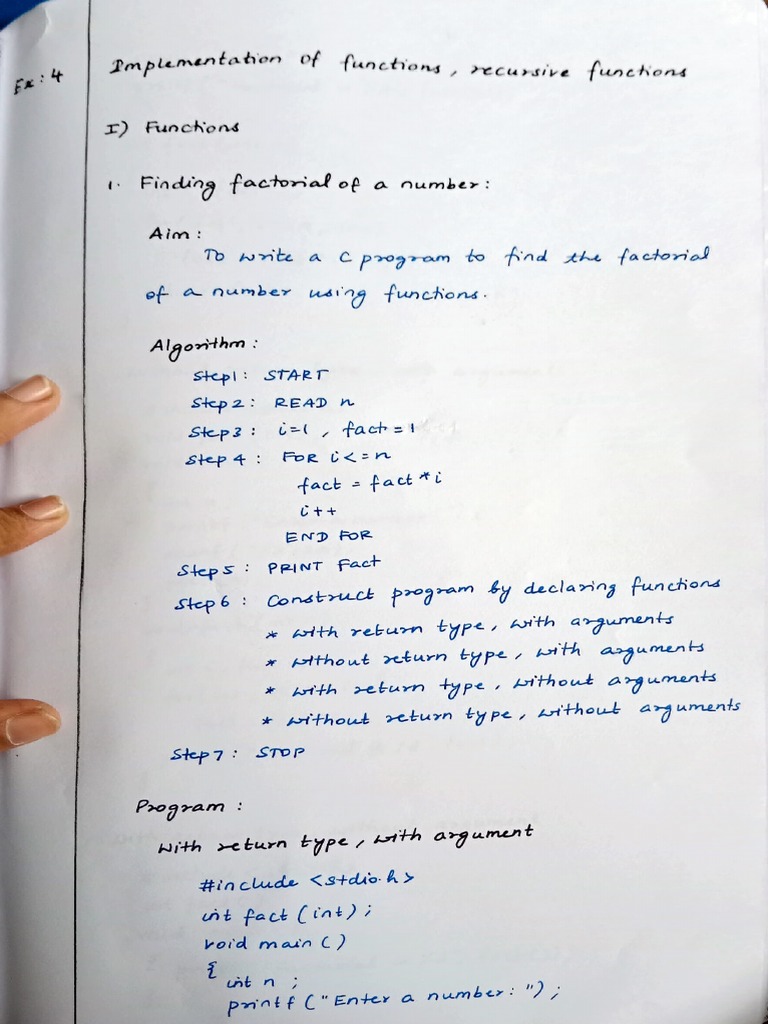 Ex: 4
Implementation of functions, recursive functions
I) Functions
1. Finding factorial of a number:
Aim:
To write a C program to find the factorial
of a number using functions.
Algorithm:
Step1: START
Step2: READ n
Step3: i=1, fact=1
Step 4: FOR i<=n
fact = fact*i
i++
END FOR
Step5: PRINT Fact
Step6: Construct program by declaring functions
* with return type, with arguments
* without return type, with arguments
* with return type, without arguments
* without return type, without arguments
Step7: STOP
Program:
With return type, with argument
#include <stdio.h>
int fact (int);
void main()
{
int n;
printf("Enter a number: ");